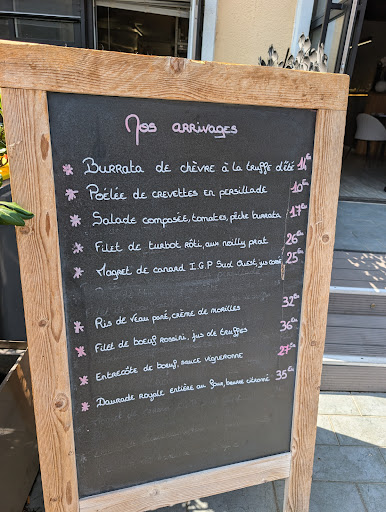 Nos arrivages
* Burrata de chèvre à la truffe d'été 14€
* Poêlée de crevettes en persillade 10€
* Salade composée, tomates, pêche burrata 17€
* Filet de turbot rôti, aux noilly prat 26€
* Magret de canard I.G.P Sud Ouest, jus corsé 25€
* Ris de veau pané, crème de morilles 32€
* Filet de bœuf rossini, jus de truffes 36€
* Entrecôte de bœuf, sauce vigneronne 27€
* Daurade royale entière au four, beurre citronné 35€